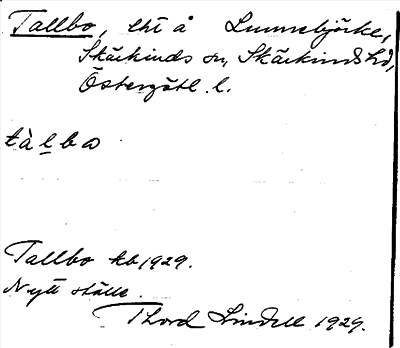 Tallbo, lht å Lunnebjörke,
Skärkinds sn, Skärkinds hd,
Östergötl. l.
tàlba
Tallbo kb 1929.
Nytt ställe.
Thord Lindell 1929.